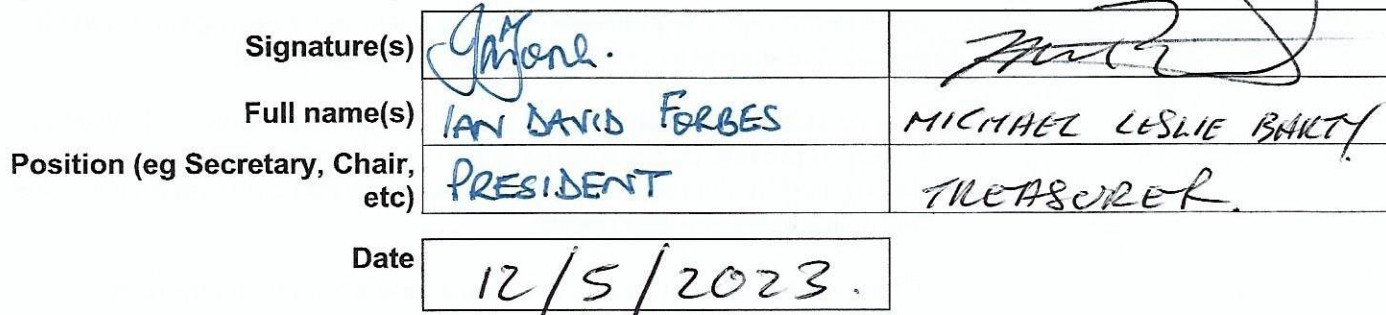 Signature(s)
Full name(s) IAN DAVID FORBES MICHAEL LESLIE BARTY
Position (eg Secretary, Chair,
etc) PRESIDENT TREASURER.
Date 12/5/2023.